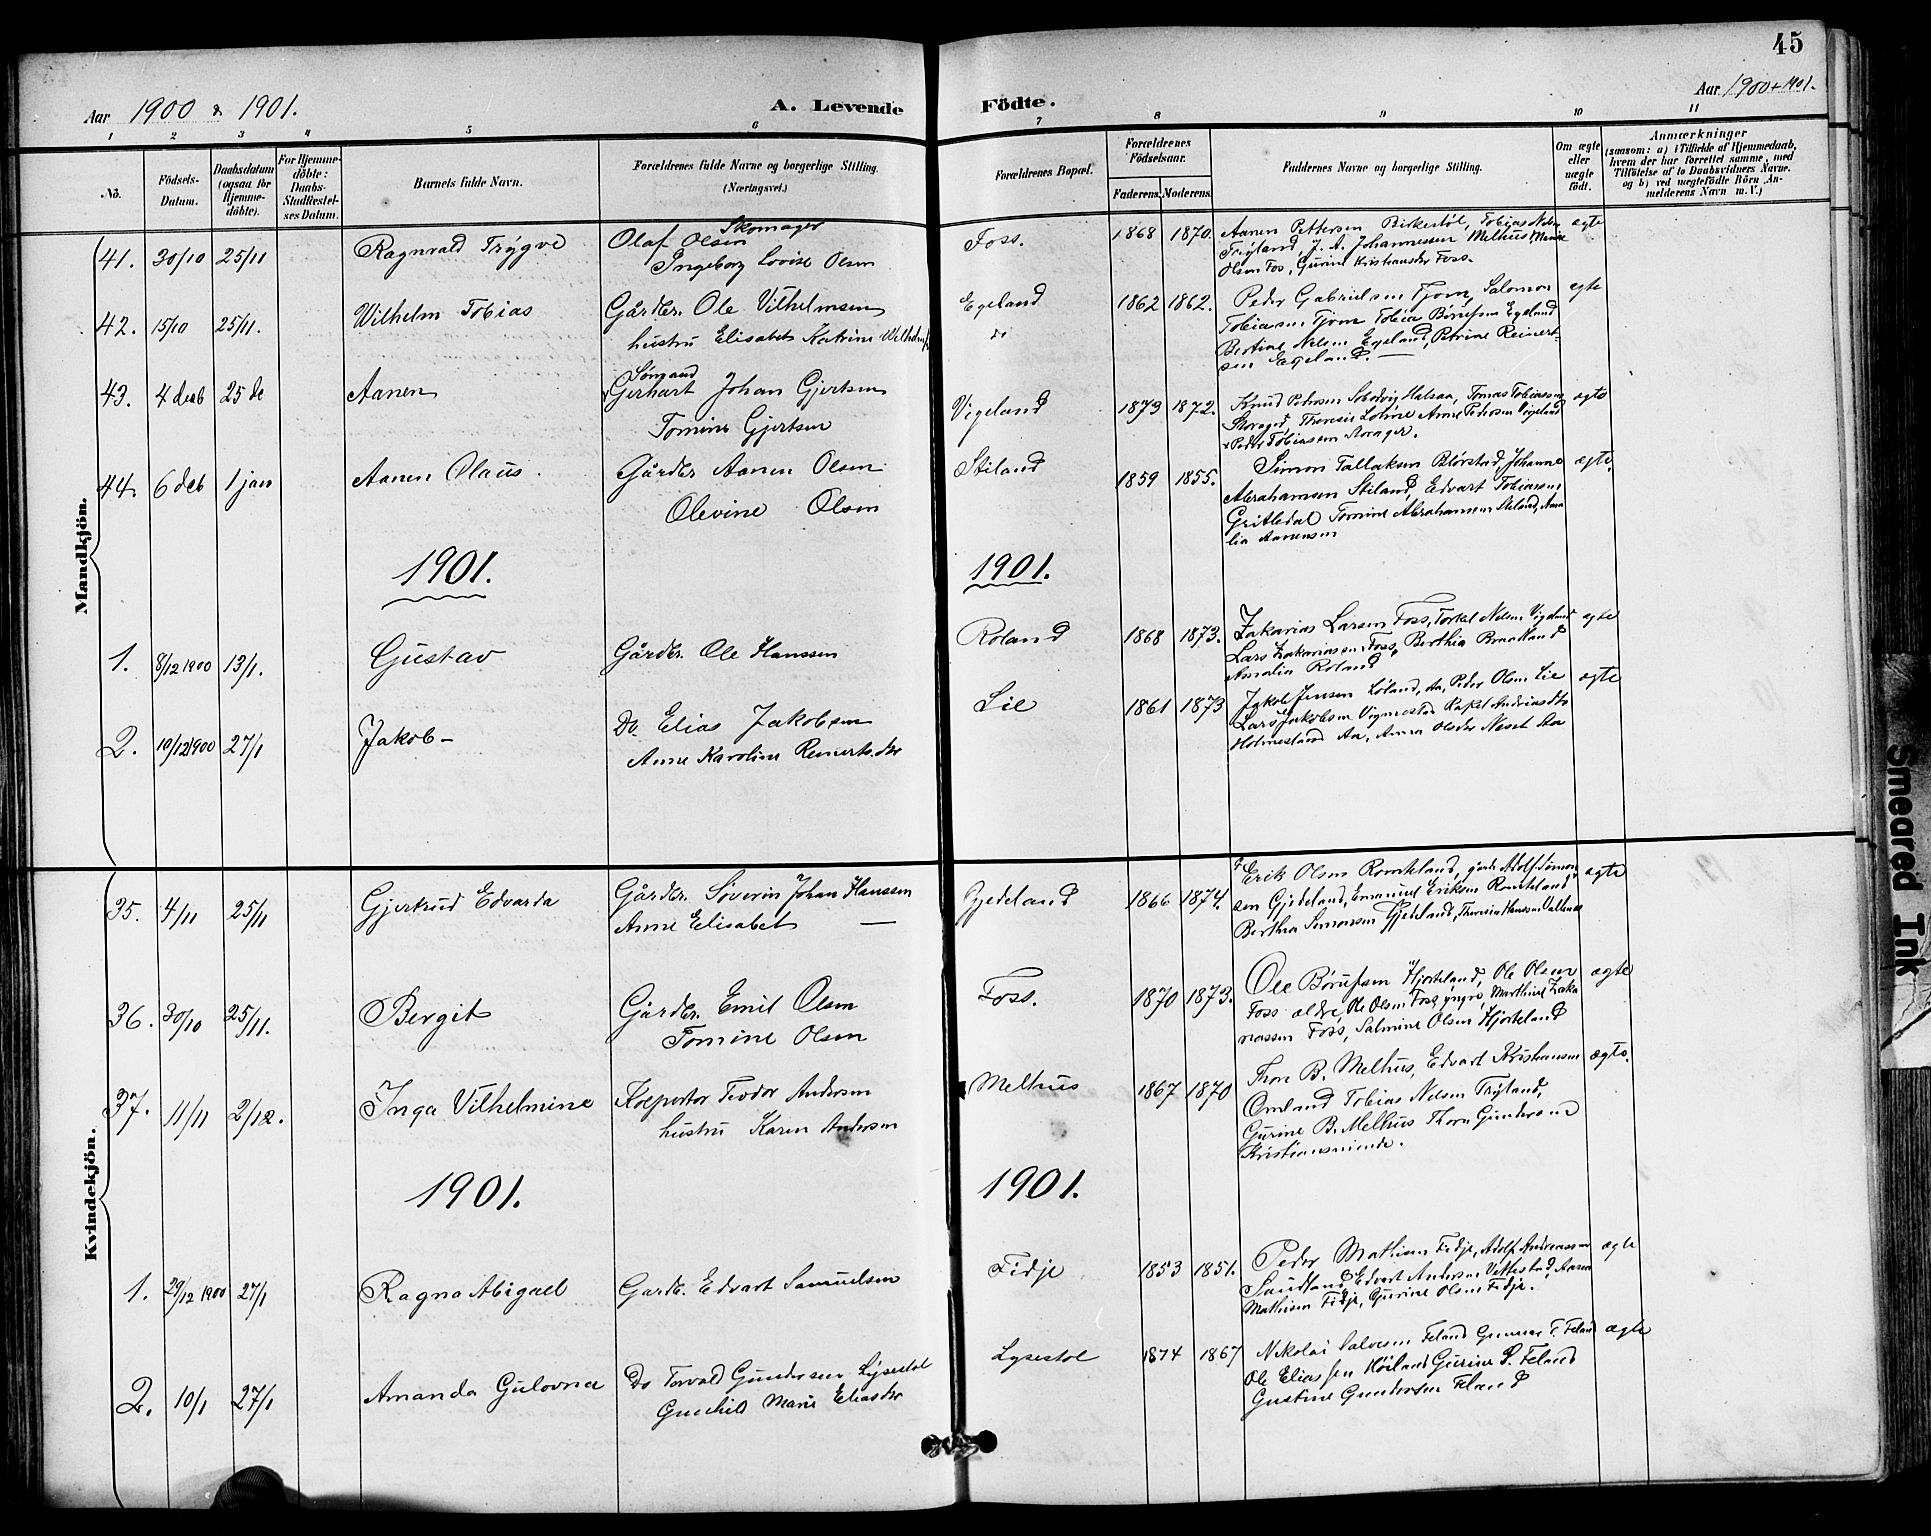 45
Aar 1900 & 1901.
A. Levende Födte.
Aar 1900+1901.
1 2 3 4 5 6 7 8 9 10 11
No.
Födsels-Datum.
Daabsdatum (ogsaa for Hjemme-döbte).
For Hjemme-döbte: Daabs-Stadfæstel-ses Datum.
Barnets fulde Navn.
Forældrenes fulde Navne og borgerlige Stilling. (Næringsvei.)
Forældrenes Bopæl.
Forældrenes Födselsaar.
Faderens. Moderens.
Faddernes Navne og borgerlige Stilling.
Om ægte eller uægte födt.
Anmærkninger
(saasom: a) i Tilfælde af Hjemmedaab, hvem der har forrettet samme, med Tilföielse af to Daabsvidners Navne. og b) ved uægtefödte Börn An-melderens Navn m. V.)
Mandkjön.
41. 30/10 25/11 Ragnvald Trygve
Skomager
Olaf Olsen
Ingeborg Lovise Olsen
Foss. 1868 1870.
Aanen Pettersen Birkestøl, Tobias Nelsen
Trÿland, J. A. Johannessen Melhus,
Olsen Fos, Gurine Kristiansdtr Foss.
ægte
42. 15/10 25/11. Wilhelm Tobias
Gårdbr. Ole Vilhelmsen
hustru Elisabet Katrine
Egeland
do
1862 1862.
Peder Gabrielsen Tjom, Salomon
Tobiasen Tjom Tobias Børufsen Egeland
Bertine Nelsen Egeland, Petrine Reinert-
sen Egeland. —
egte
43. 4 decb 25 de Aanen
Sømand
Gerhart Johan Gjertsen
Tomine Gjertsen
Vigeland 1873 1872.
Knud Pedersen Halsaa, Tomas Tobiassen
Storager, Theresie Anne Pedersen Vigeland
+ Peder Tobiassen Storager.
ægte
44. 6 deb 1 jan Aanen Olaus.
Gårdbr Aanen Olsen
Olevine Olsen
Stiland 1859 1855.
Simon Tallaksen Johanne
Abrahamsen Stiland, Edvart Tobiassen
Gritledal Tomine Abrahamsen Stiland, Ama
lia Aanensen
ægte.
1901. 1901.
1. 8/12 1900 13/1. Gustav
Gårdbr. Ole Hanssen
Roland 1868 1873.
Zakarias Larsen Foss, Torkel Nelsen Vigeland
Lars Zakariassen Foss, Berthia Braatland
Amalia Roland
ægte
2. 19/12 1900 27/1 Jakob—
Do Elias Jakobsen
Anne Karoline Reinertsdtr
Lie 1861 1873
Jakob Jensen Løland, Aa, Peder Olsen Lie
Lars Jakobsen Vigmestad Rakel Andriasdtr
Holmesland Aa, Anna Olsdtr Neset Aa
ægte
Kvindekjön.
35. 4/11 25/11 Gjertrud Edvarda
Gårdbr. Søverin Johan Hanssen
Anne Elisabet —
Gjedeland 1866 1874.
Erik Olsen Romteland, gårdb Adolf Simon-
sen Gjedeland, Emanuel Eriksen Romteland
Berthea Simonsen Gjedeland, Hanssen
ægte
36. 30/10 25/11. Bergit
Gårdbr. Emil Olsen
Tomine Olsen
Foss. 1870 1873.
Ole Børufsen Hjorteland, Ole Olsen
Foss ældre, Ole Olsen Foss yngre, Marthine Zaka
riassen Foss, Salmine Olsen Hjorteland
ægte
37. 11/11 2/12. Inga Vilhelmine
Kolportør Teodor Andersen
hustru Karen Andersen
Melhus 1867 1870
Thore B. Melhus, Edvart Kristiansen
Omland Tobias Nelsen Trÿland,
Gurine B. Melhus Thom Gundersen
Kristiansminde.
ægte.
1901. 1901.
1. 29/12 1900 27/1 Ragna Abigael
Gardb. Edvart Samuelsen
Fidje 1853 1851.
Peder Mathisen Fidje, Adolf Andreassen
Saudland Edvart Andersen Vittestad, Aasne
Mathisen Fidje, Gurine Olsen Fidje.
ægte
2. 10/1 27/1 Amanda Gulovna
Do Torvald Gundersen Lÿsestol
Gunhild Marie Eliasdtr
Lysestol 1874 1867
Nikolai Salvesen Feland Gunnar T. Feland
Ole Eliassen Høiland Gurine S. Feland
Gustine Gundersen Feland
ægte
Smeared Ink